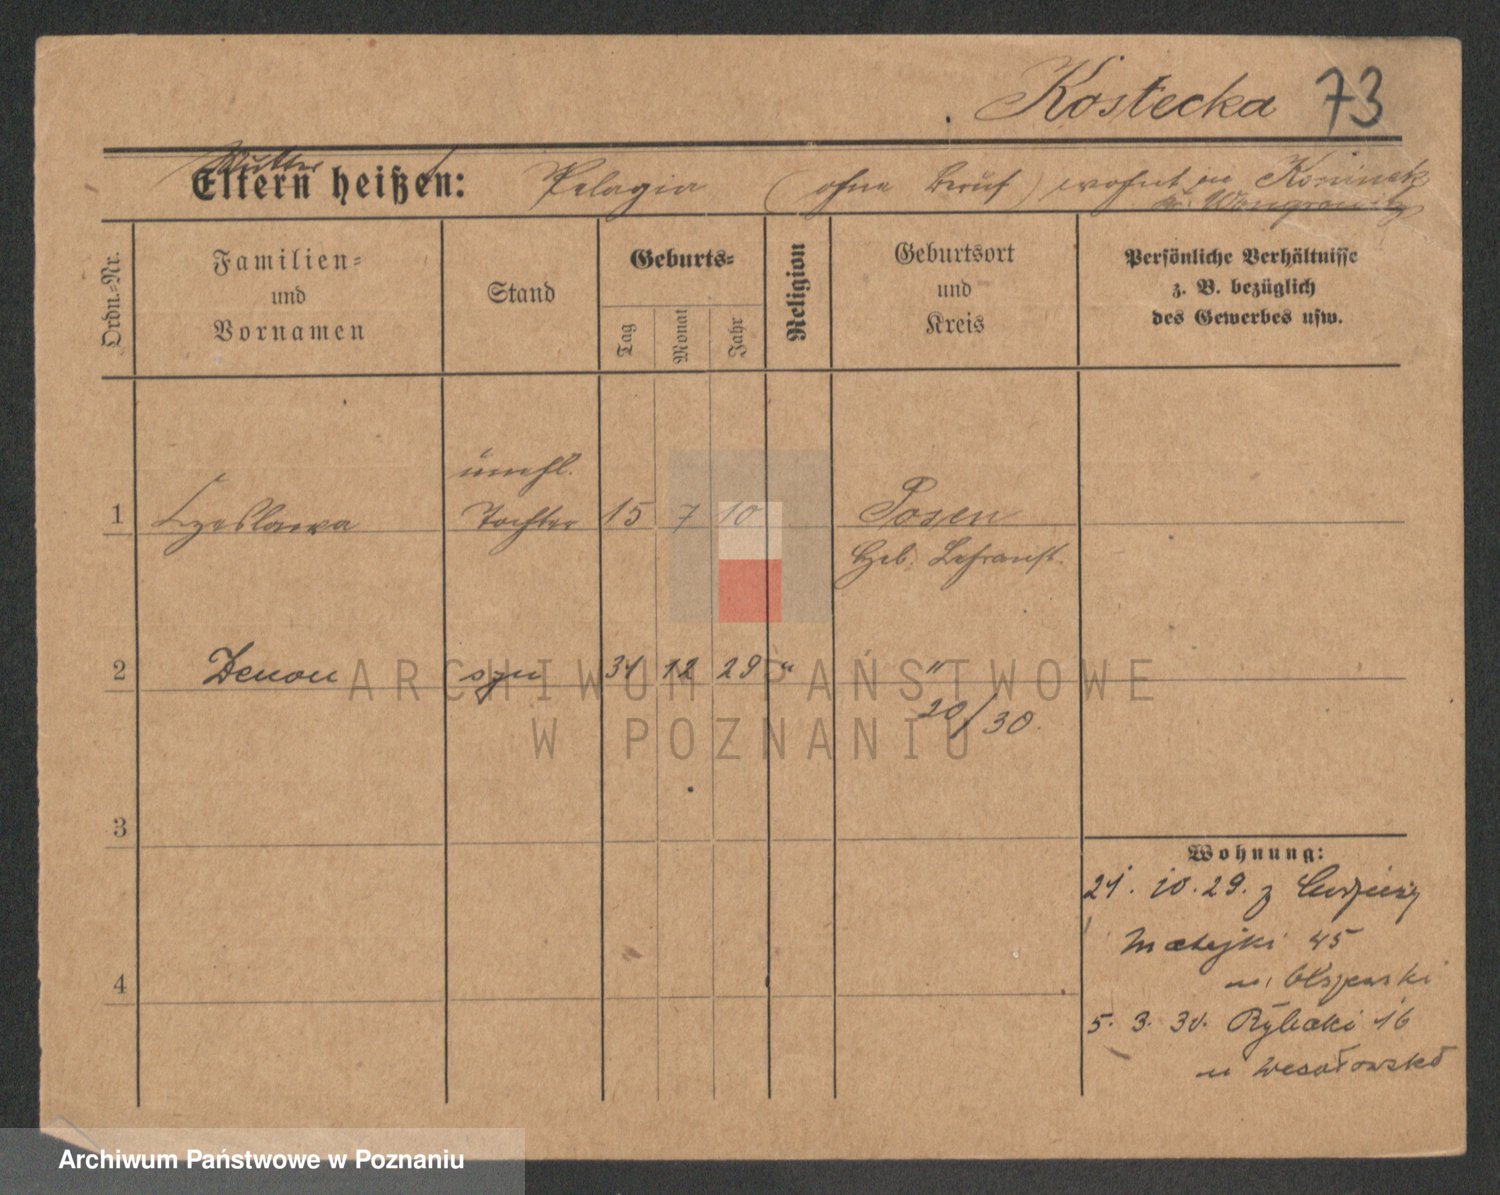 Kostecka 73
Mutter
Eltern heißen: Pelagia (ohne Beruf) wohnt in Koninek
Kr. Wongrowitz
Ordn.-Nr.
Familien-
und
Vornamen
Stand
Geburts-
Tag
Monat
Jahr
Religion
Geburtsort
und
Kreis
Persönliche Verhältnisse
z. B. bezüglich
des Gewerbes usw.
unehl.
1 Czeslawa Tochter 15 7 10 Posen
Heb. Lehranst.
2 Zenon syn 31 12 29 " "
20/30.
3
4
Wohnung:
21. 10. 29. z
Matejki 45
Olszewski
5. 3. 30. Rybaki 16
Wesołowskd
ARCHIWUM PAŃSTWOWE
W POZNANIU
Archiwum Państwowe w Poznaniu